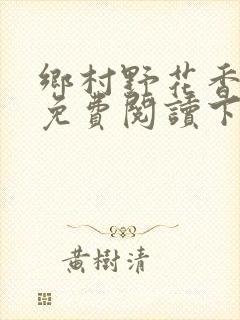 鄉村野花香
免費閱讀下
黃樹清